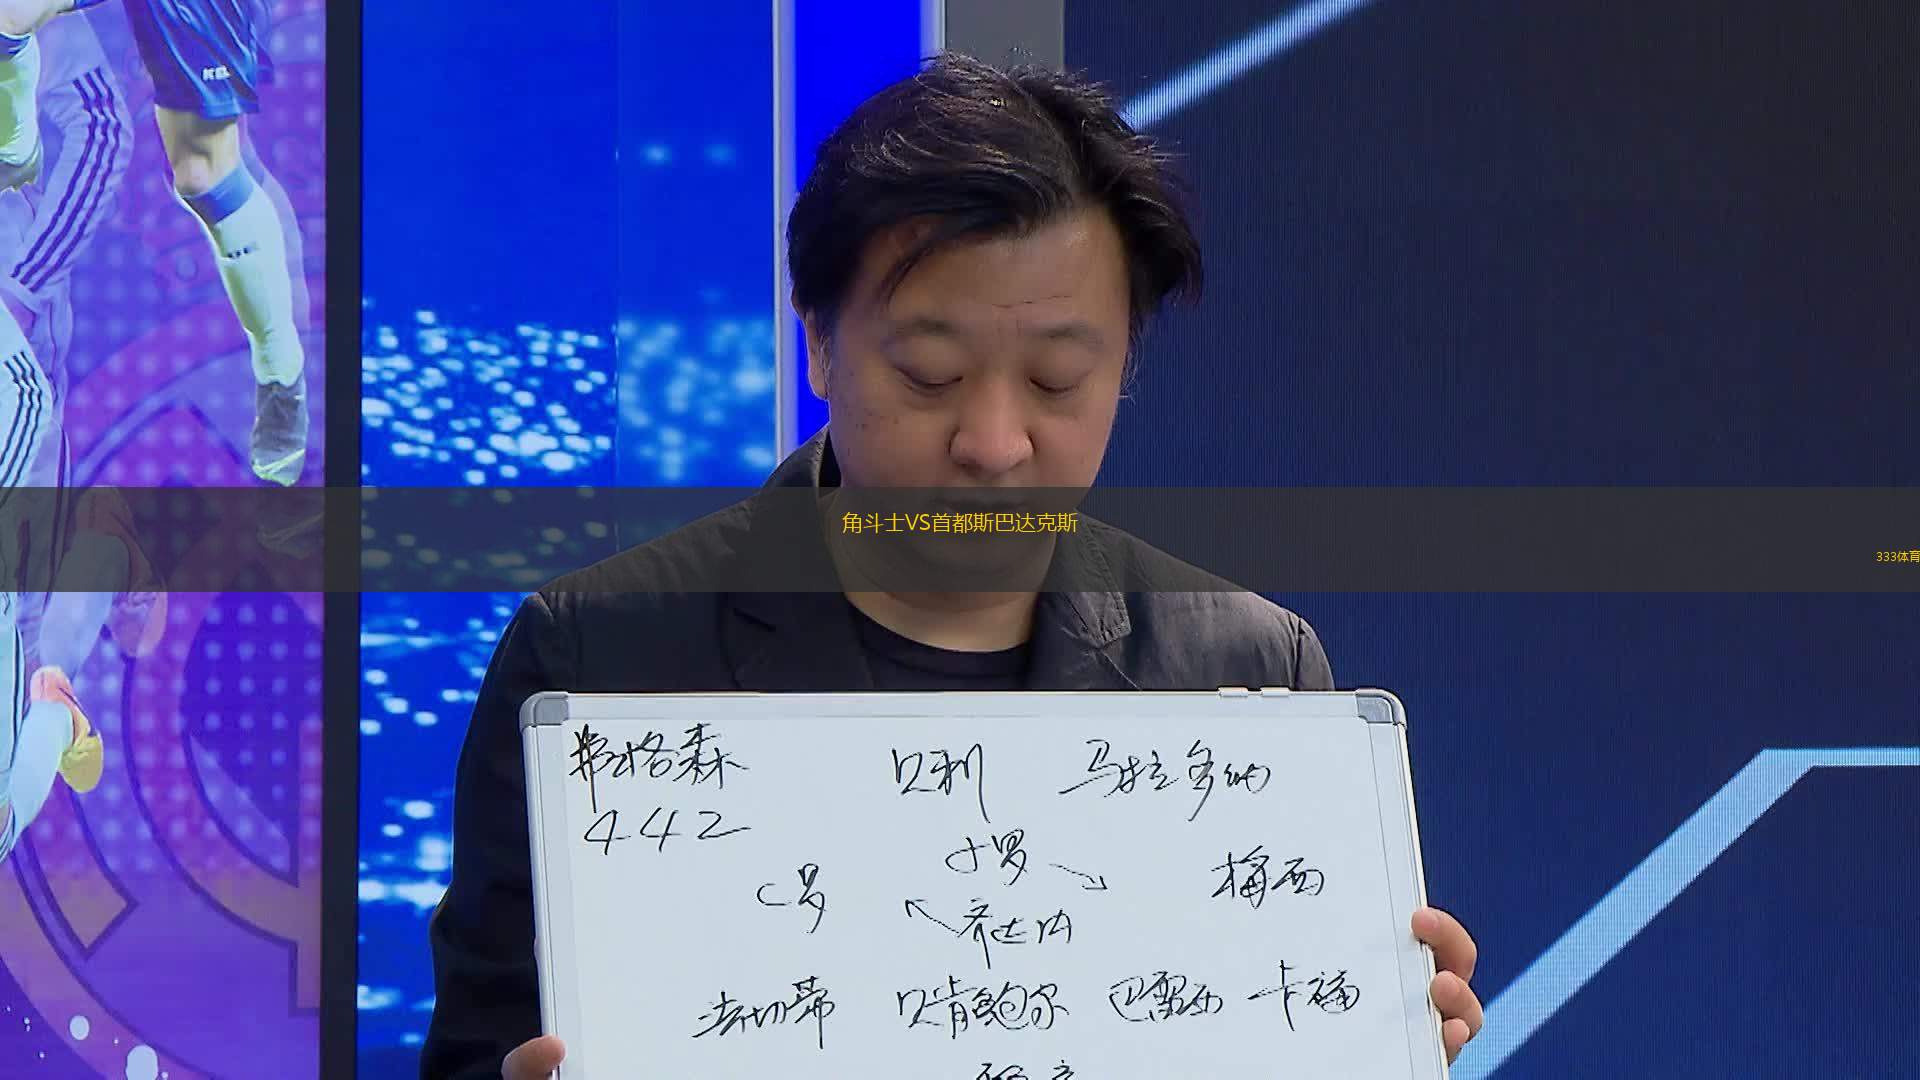 角斗士VS首都斯巴达克斯
333体育
弗格森 贝利 马拉多纳
442
小罗
C罗 梅西
齐达内
法切蒂 贝肯鲍尔 巴雷西 卡福